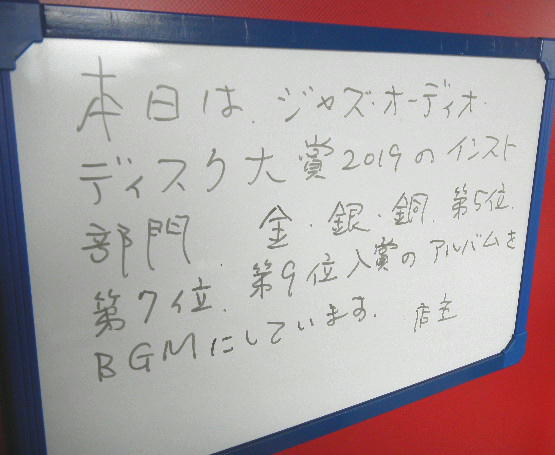 本日は、ジャズ・オーディオ・
ディスク大賞2019のインスト
部門、金・銀・銅、第5位、
第7位、第9位入賞のアルバムを
BGMにしています。 店主